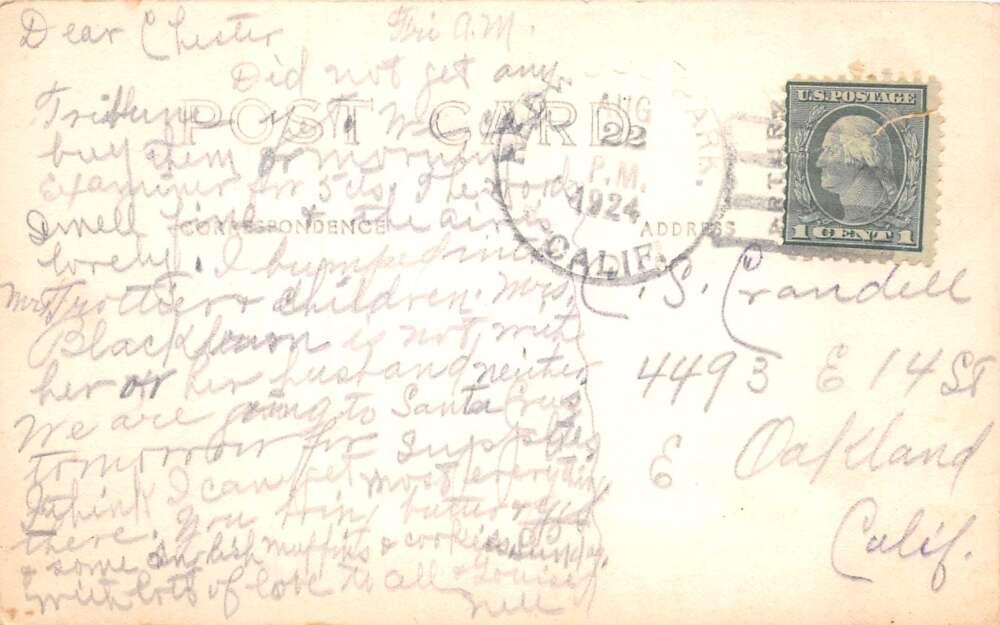 Dear Chester Fri A.M.
Did not get any
Tribunes yet. We can
buy them or morning
Examiner for 5 cts. The woods
smell fine & the air is
lovely. I bumped into
Mrs. Trottier & children. Mrs.
is not with
her or her husband neither
We are going to Santa Cruz
tomorrow for Supplies
I think I can get most everything
there. You bring butter & eggs
& some English muffins & cookies Sunday.
with lots of love to all & Louise
Nell
POST CARD
CORRESPONDENCE
ADDRESS
AUG
22
P.M.
1924
CALIF.
PARK.
U.S. POSTAGE
1 CENT 1
C. S. Crandell
4493 E 14 St
E Oakland
Calif.